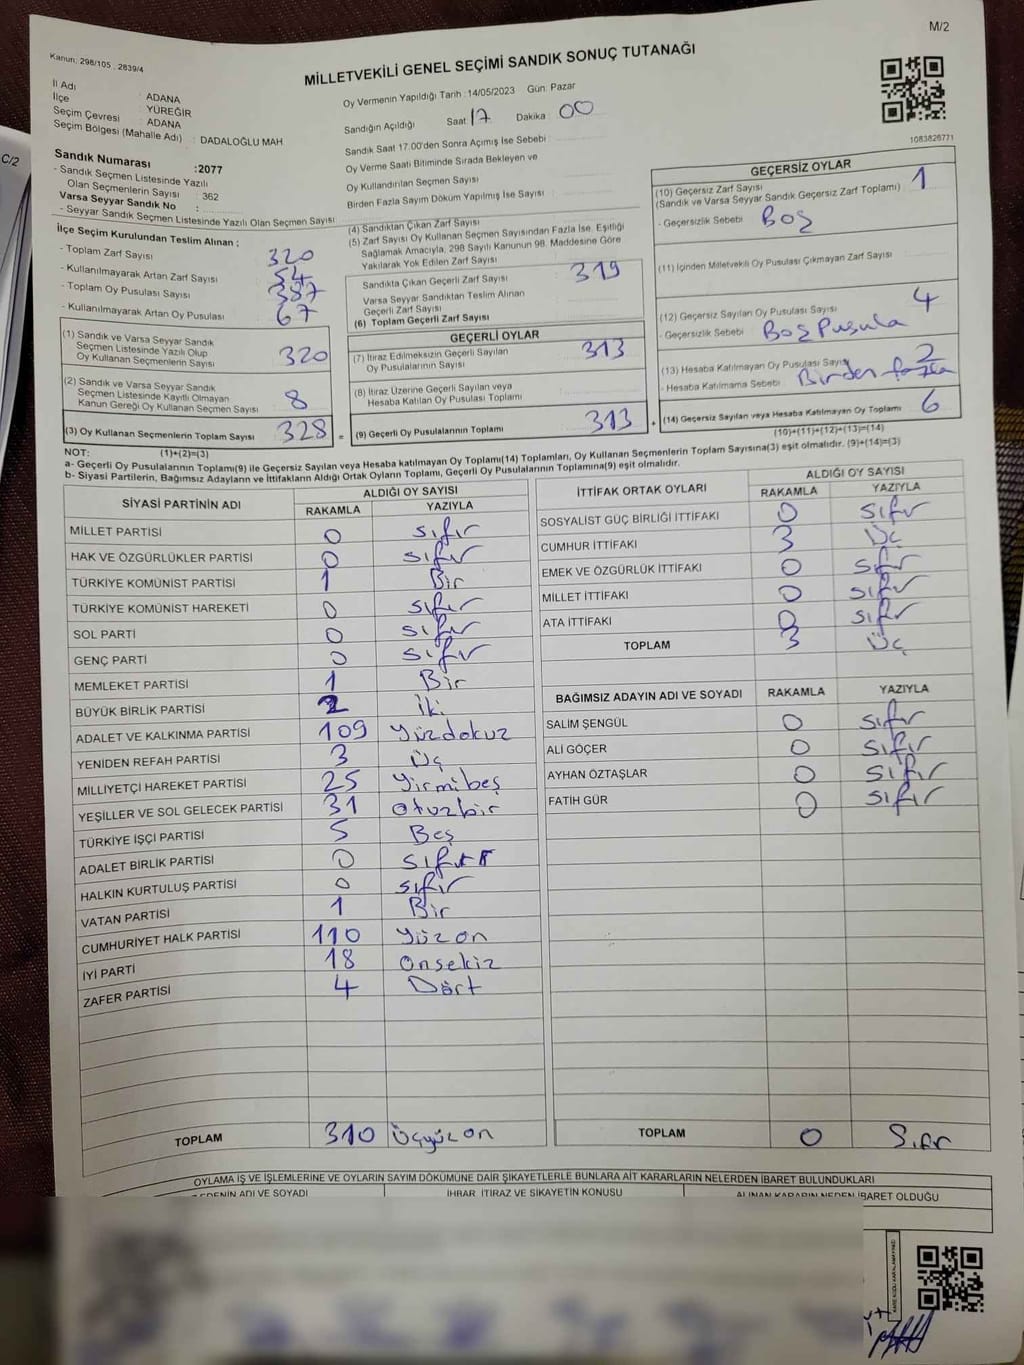 M/2
Kanun: 298/105 , 2839/4
MİLLETVEKİLİ GENEL SEÇİMİ SANDIK SONUÇ TUTANAĞI
İl Adı : ADANA
İlçe : YÜREĞİR
Seçim Çevresi : ADANA
Seçim Bölgesi (Mahalle Adı) : DADALOĞLU MAH
Oy Vermenin Yapıldığı Tarih : 14/05/2023 Gün: Pazar
Sandığın Açıldığı Saat 17 Dakika : 00
Sandık Saat 17.00'den Sonra Açımış İse Sebebi :
Oy Verme Saati Bitiminde Sırada Bekleyen ve
Oy Kullandırılan Seçmen Sayısı
Birden Fazla Sayım Döküm Yapılmış İse Sayısı :
1083826771
C/2
Sandık Numarası : 2077
- Sandık Seçmen Listesinde Yazılı
Olan Seçmenlerin Sayısı : 362
Varsa Seyyar Sandık No :
- Seyyar Sandık Seçmen Listesinde Yazılı Olan Seçmen Sayısı
İlçe Seçim Kurulundan Teslim Alınan ;
- Toplam Zarf Sayısı 320
- Kullanılmayarak Artan Zarf Sayısı 54
- Toplam Oy Pusulası Sayısı 387
- Kullanılmayarak Artan Oy Pusulası 67
(1) Sandık ve Varsa Seyyar Sandık
Seçmen Listesinde Yazılı Olup
Oy Kullanan Seçmenlerin Sayısı 320
(2) Sandık ve Varsa Seyyar Sandık
Seçmen Listesinde Kayıtlı Olmayan
Kanun Gereği Oy Kullanan Seçmen Sayısı 8
(3) Oy Kullanan Seçmenlerin Toplam Sayısı 328 =
(1)+(2)=(3)
(4) Sandıktan Çıkan Zarf Sayısı
(5) Zarf Sayısı Oy Kullanan Seçmen Sayısından Fazla İse, Eşitliği
Sağlamak Amacıyla, 298 Sayılı Kanunun 98. Maddesine Göre
Yakılarak Yok Edilen Zarf Sayısı
Sandıkta Çıkan Geçerli Zarf Sayısı 319
Varsa Seyyar Sandıktan Teslim Alınan
Geçerli Zarf Sayısı
(6) Toplam Geçerli Zarf Sayısı
GEÇERLİ OYLAR
(7) İtiraz Edilmeksizin Geçerli Sayılan
Oy Pusulalarının Sayısı 313
(8) İtiraz Üzerine Geçerli Sayılan veya
Hesaba Katılan Oy Pusulası Toplamı
(9) Geçerli Oy Pusulalarının Toplamı 313 +
GEÇERSİZ OYLAR
(10) Geçersiz Zarf Sayısı
(Sandık ve Varsa Seyyar Sandık Geçersiz Zarf Toplamı) 1
- Geçersizlik Sebebi Boş
(11) İçinden Milletvekili Oy Pusulası Çıkmayan Zarf Sayısı
(12) Geçersiz Sayılan Oy Pusulası Sayısı 4
- Geçersizlik Sebebi Boş Pusula
(13) Hesaba Katılmayan Oy Pusulası Sayısı 2
- Hesaba Katılmama Sebebi Birden fazla
(14) Geçersiz Sayılan veya Hesaba Katılmayan Oy Toplamı 6
(10)+(11)+(12)+(13)=(14)
NOT:
a- Geçerli Oy Pusulalarının Toplamı(9) ile Geçersiz Sayılan veya Hesaba katılmayan Oy Toplamı(14) Toplamları, Oy Kullanan Seçmenlerin Toplam Sayısına(3) eşit olmalıdır. (9)+(14)=(3)
b- Siyasi Partilerin, Bağımsız Adayların ve İttifakların Aldığı Ortak Oyların Toplamı, Geçerli Oy Pusulalarının Toplamına(9) eşit olmalıdır.
SİYASİ PARTİNİN ADI ALDIĞI OY SAYISI
RAKAMLA YAZIYLA
MİLLET PARTİSİ 0 sıfır
HAK VE ÖZGÜRLÜKLER PARTİSİ 0 sıfır
TÜRKİYE KOMÜNİST PARTİSİ 1 Bir
TÜRKİYE KOMÜNİST HAREKETİ 0 sıfır
SOL PARTİ 0 sıfır
GENÇ PARTİ 0 sıfır
MEMLEKET PARTİSİ 1 Bir
BÜYÜK BİRLİK PARTİSİ 2 İki
ADALET VE KALKINMA PARTİSİ 109 Yüzdokuz
YENİDEN REFAH PARTİSİ 3 Üç
MİLLİYETÇİ HAREKET PARTİSİ 25 Yirmibeş
YEŞİLLER VE SOL GELECEK PARTİSİ 31 Otuzbir
TÜRKİYE İŞÇİ PARTİSİ 5 Beş
ADALET BİRLİK PARTİSİ 0 sıfır
HALKIN KURTULUŞ PARTİSİ 0 sıfır
VATAN PARTİSİ 1 Bir
CUMHURİYET HALK PARTİSİ 110 Yüzon
İYİ PARTİ 18 Onsekiz
ZAFER PARTİSİ 4 Dört
TOPLAM 310 Üçyüzon
İTTİFAK ORTAK OYLARI ALDIĞI OY SAYISI
RAKAMLA YAZIYLA
SOSYALİST GÜÇ BİRLİĞİ İTTİFAKI 0 sıfır
CUMHUR İTTİFAKI 3 Üç
EMEK VE ÖZGÜRLÜK İTTİFAKI 0 sıfır
MİLLET İTTİFAKI 0 sıfır
ATA İTTİFAKI 0 sıfır
TOPLAM 3 Üç
BAĞIMSIZ ADAYIN ADI VE SOYADI RAKAMLA YAZIYLA
SALİM ŞENGÜL 0 sıfır
ALİ GÖÇER 0 sıfır
AYHAN ÖZTAŞLAR 0 sıfır
FATİH GÜR 0 sıfır
TOPLAM 0 Sıfır
OYLAMA İŞ VE İŞLEMLERİNE VE OYLARIN SAYIM DÖKÜMÜNE DAİR ŞİKAYETLERLE BUNLARA AİT KARARLARIN NELERDEN İBARET BULUNDUKLARI
EDENİN ADI VE SOYADI İHBAR, İTİRAZ VE ŞİKAYETİN KONUSU ALINAN KARARIN NEDEN İBARET OLDUĞU